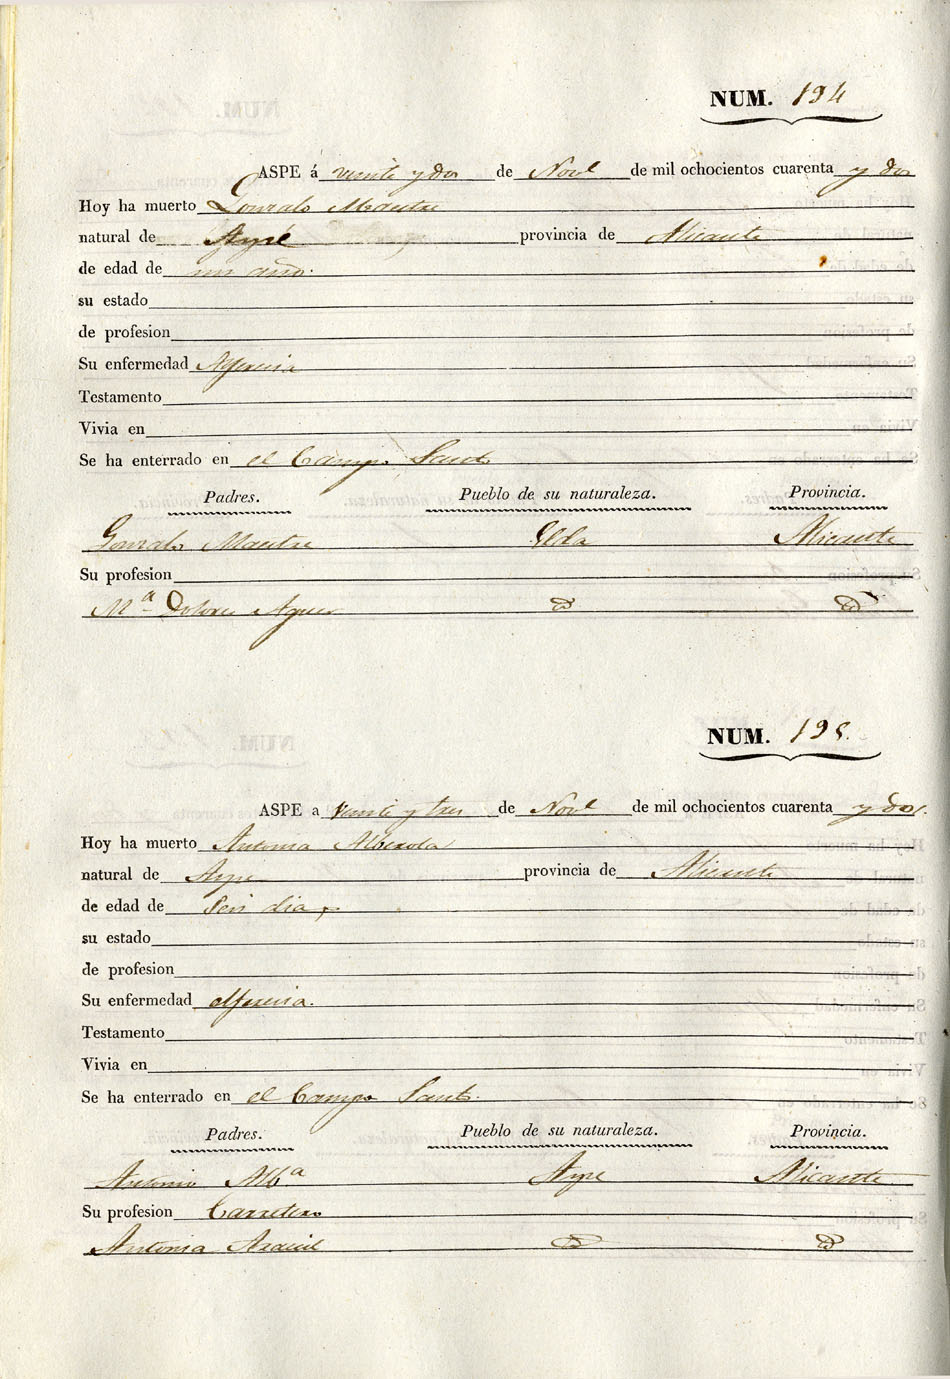 NUM. 194
ASPE á veinte y dos de Novl de mil ochocientos cuarenta y dos
Hoy ha muerto Gonzalo Maestre
natural de Aspe provincia de Alicante
de edad de un año.
su estado
de profesion
Su enfermedad Alferecia
Testamento
Vivia en
Se ha enterrado en el Campo Santo
Padres. Pueblo de su naturaleza. Provincia.
Gonzalo Maestre Elda Alicante
Su profesion
Mª Dolores
NUM. 195.
ASPE a veinte y tres de Novl de mil ochocientos cuarenta y dos.
Hoy ha muerto Antonia Alberola
natural de Aspe provincia de Alicante
de edad de Seis dias
su estado
de profesion
Su enfermedad Alferecia.
Testamento
Vivia en
Se ha enterrado en el Campo Santo.
Padres. Pueblo de su naturaleza. Provincia.
Antonio Albª Aspe Alicante
Su profesion Carretero
Antonia Asencil